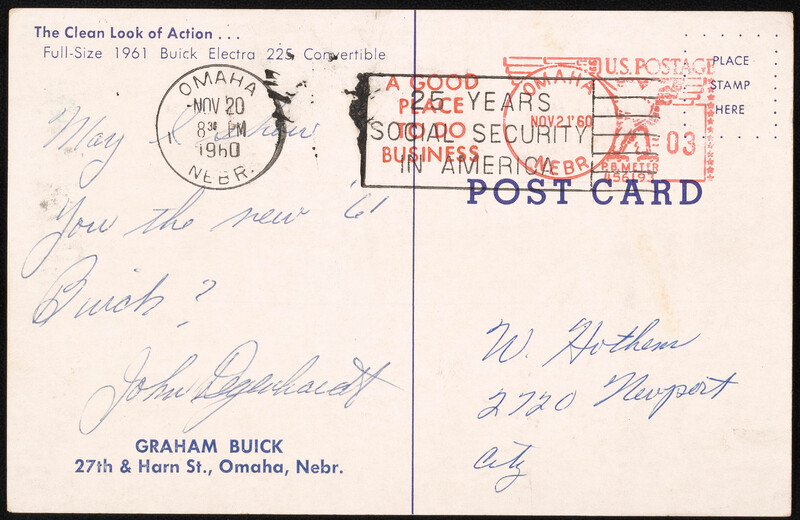 The Clean Look of Action . . .
Full-Size 1961 Buick Electra 225 Convertible
OMAHA
NOV 20
8 30 PM
1960
NEBR.
A GOOD
PLACE
TO DO
BUSINESS
25 YEARS
SOCIAL SECURITY
IN AMERICA
OMAHA
NOV 21 '60
NEBR.
U.S. POSTAGE
03
P.B. METER
456193
PLACE
STAMP
HERE
POST CARD
May I show
You the new '61
Buick?
John Degenhardt
GRAHAM BUICK
27th & Harn St., Omaha, Nebr.
W. Hothem
2720 Newport
City